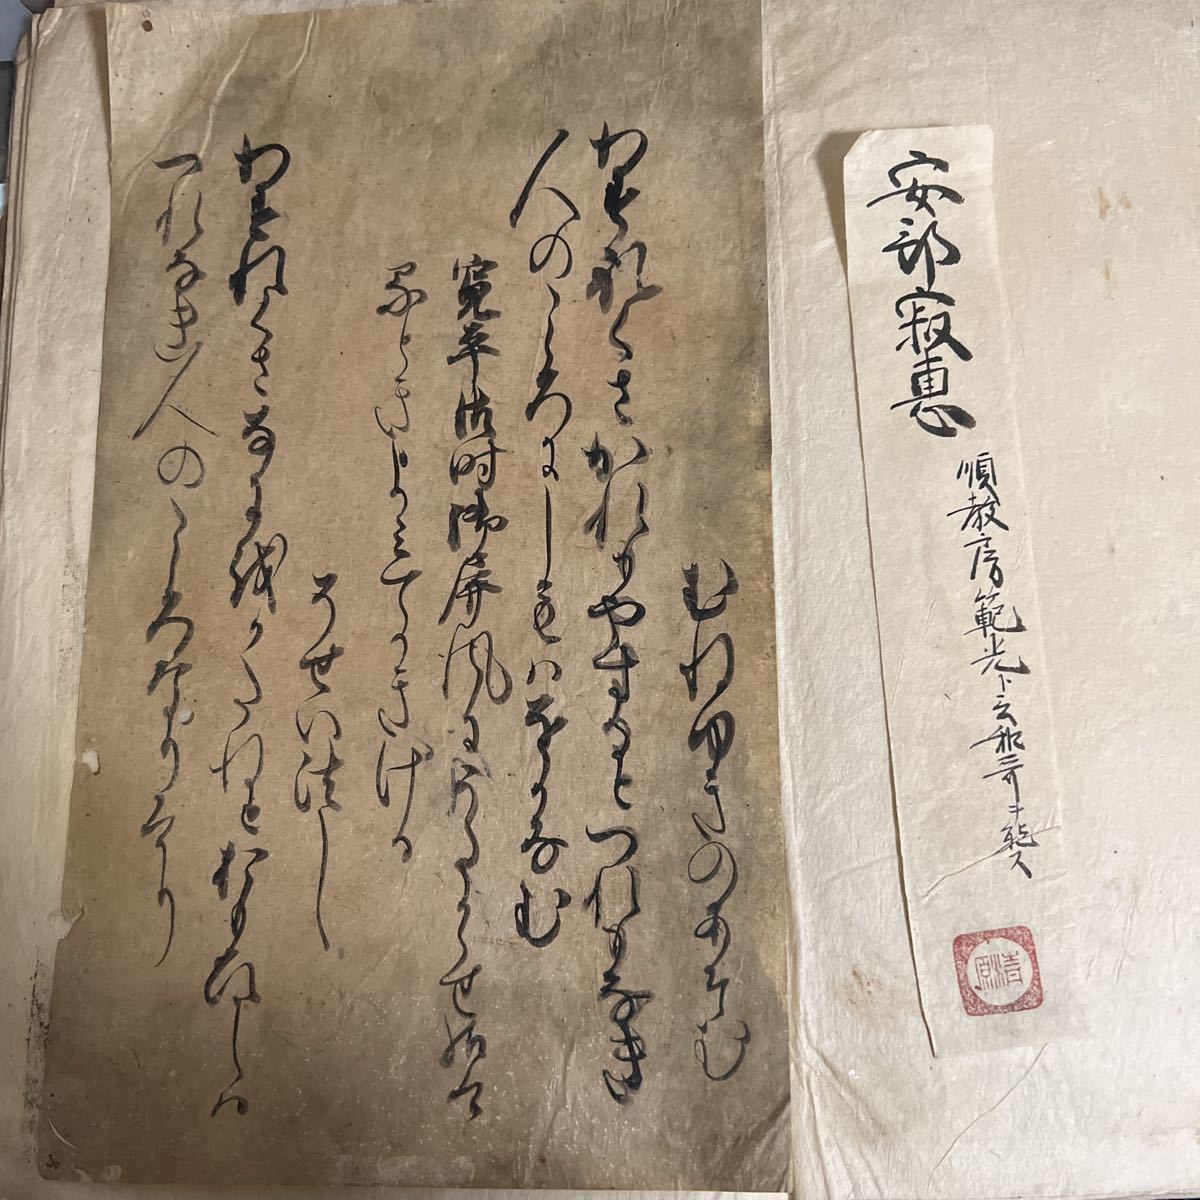 安部寂恵
順教房範光ト云和哥ヲ能ス
むねゆきのあそむ
わすれくさかれもやするとつれもなき
人のこゝろにしもはをかなむ
寛平御時御屏風にうたかゝせ給
けるときよみてかきける
そせい法し
わすれくさなにをかたねとおもひしは
つれなき人のこゝろなりけり